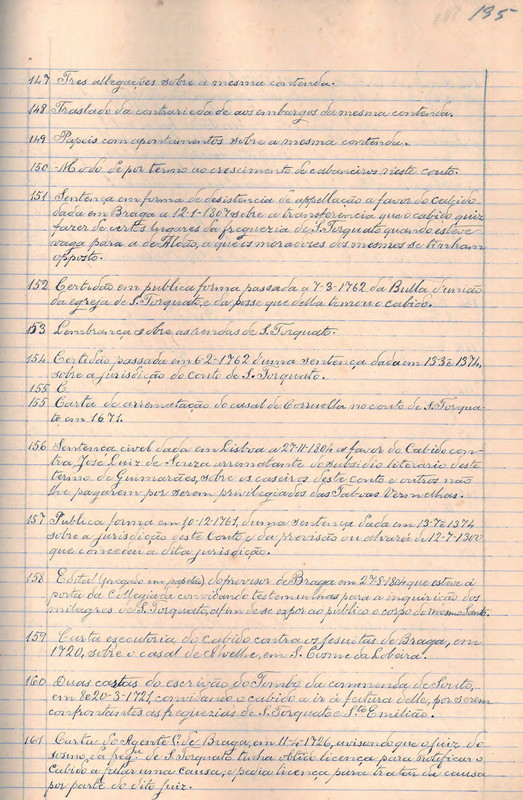 195
147 Tres allegações sobre a mesma contenda.
148 Traslado da contrariedade aos embargos da mesma contenda.
149 Papeis com apontamentos sobre a mesma contenda.
150 Modo de por termo ao crescimento de cabaneiros n'este couto.
151 Sentença em forma de desistencia de appellação a favor do Cabido
dada em Braga a 12-1-1807 sobre a transferencia que o cabido quiz
fazer de certos lugares da freguezia de S. Torquato quando esteve
vaga para a de Aldão, a que os moradores dos mesmos se tinham
opposto.
152 Certidão em publica forma passada a 7-3-1762 da Bulla d'união
da egreja de S. Torquato, e da posse que della tomou o cabido.
153 Lembrança sobre as rendas de S. Torquato.
154 Certidão, passada em 6-2-1762 d'uma sentença dada em 13-3-1374,
sobre a jurisdicção do couto de S. Torquato.
155 C
155 Carta de arrematação do casal de Corruella no couto de S. Torqua-
to em 1671.
156 Sentença civel dada em Lisboa a 27-11-1804 a favor do Cabido con-
tra José Luiz de Souza arrematante do subsidio literario deste
termo de Guimarães, sobre os caseiros deste couto e outros não
lhe pagarem por serem privilegiados das Taboas Vermelhas.
157 Publica forma em 10-12-1761, d'uma sentença dada em 13-7-1374
sobre a jurisdicção deste Couto, e da provisão ou alvará de 12-7-1300
que concedeu a dita jurisdicção.
158 Edital (pregado em papelão) do provisor de Braga em 27-8-1804 que esteve á
porta da Collegiada convidando testemunhas para a inquirição dos
milagres de S. Torquato, afim de se expor ao publico o corpo do mesmo Santo.
159 Carta executoria do cabido contra os jesuitas de Braga, em
1720, sobre o casal de Nivelhe, em S. Cosme da Lobeira.
160 Duas cartas do escrivão do Tombo da commenda de Souto,
em 8 e 20-3-1721, convidando o cabido a ir á feitura delle, por serem
confrontantes as freguezias de S. Torquato e Sto Emilião.
161 Carta do Agente G. de Braga, em 11-4-1726, avisando que o juiz do
da freg. de S. Torquato tinha obtido licença para notificar o
Cabido a falar uma causa, e pedia licença para tratar da causa
por parte do dito juiz.